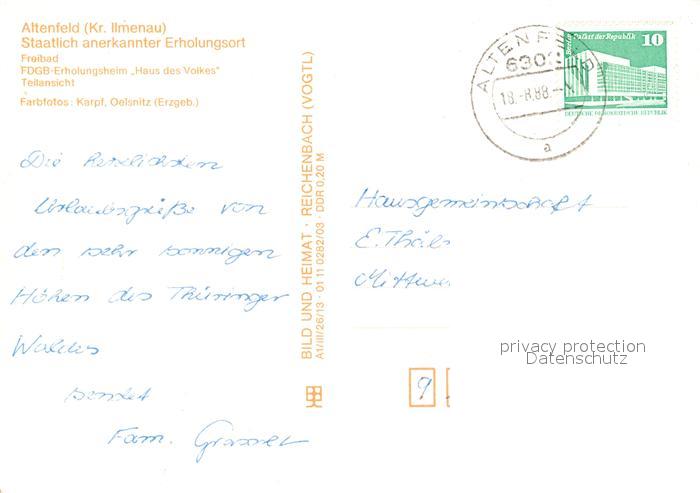 Altenfeld (Kr. Ilmenau)
Staatlich anerkannter Erholungsort
Freibad
FDGB-Erholungsheim „Haus des Volkes"
Teilansicht
Farbfotos: Karpf, Oelsnitz (Erzgeb.)
Die herzlichsten
Urlaubsgrüße von
den sehr sonnigen
Höhen des Thüringer
Waldes
sendet
Fam.
BILD UND HEIMAT · REICHENBACH (VOGTL)
A1/III/26/13 · 01 11 0282/03 · DDR 0,20 M
ALTENFELD
630
18.-8.88.-
a
Berlin Palast der Republik
10
DEUTSCHE DEMOKRATISCHE REPUBLIK
Hausgemeinschaft
E. Thäl
Mittwei
9
privacy protection
Datenschutz